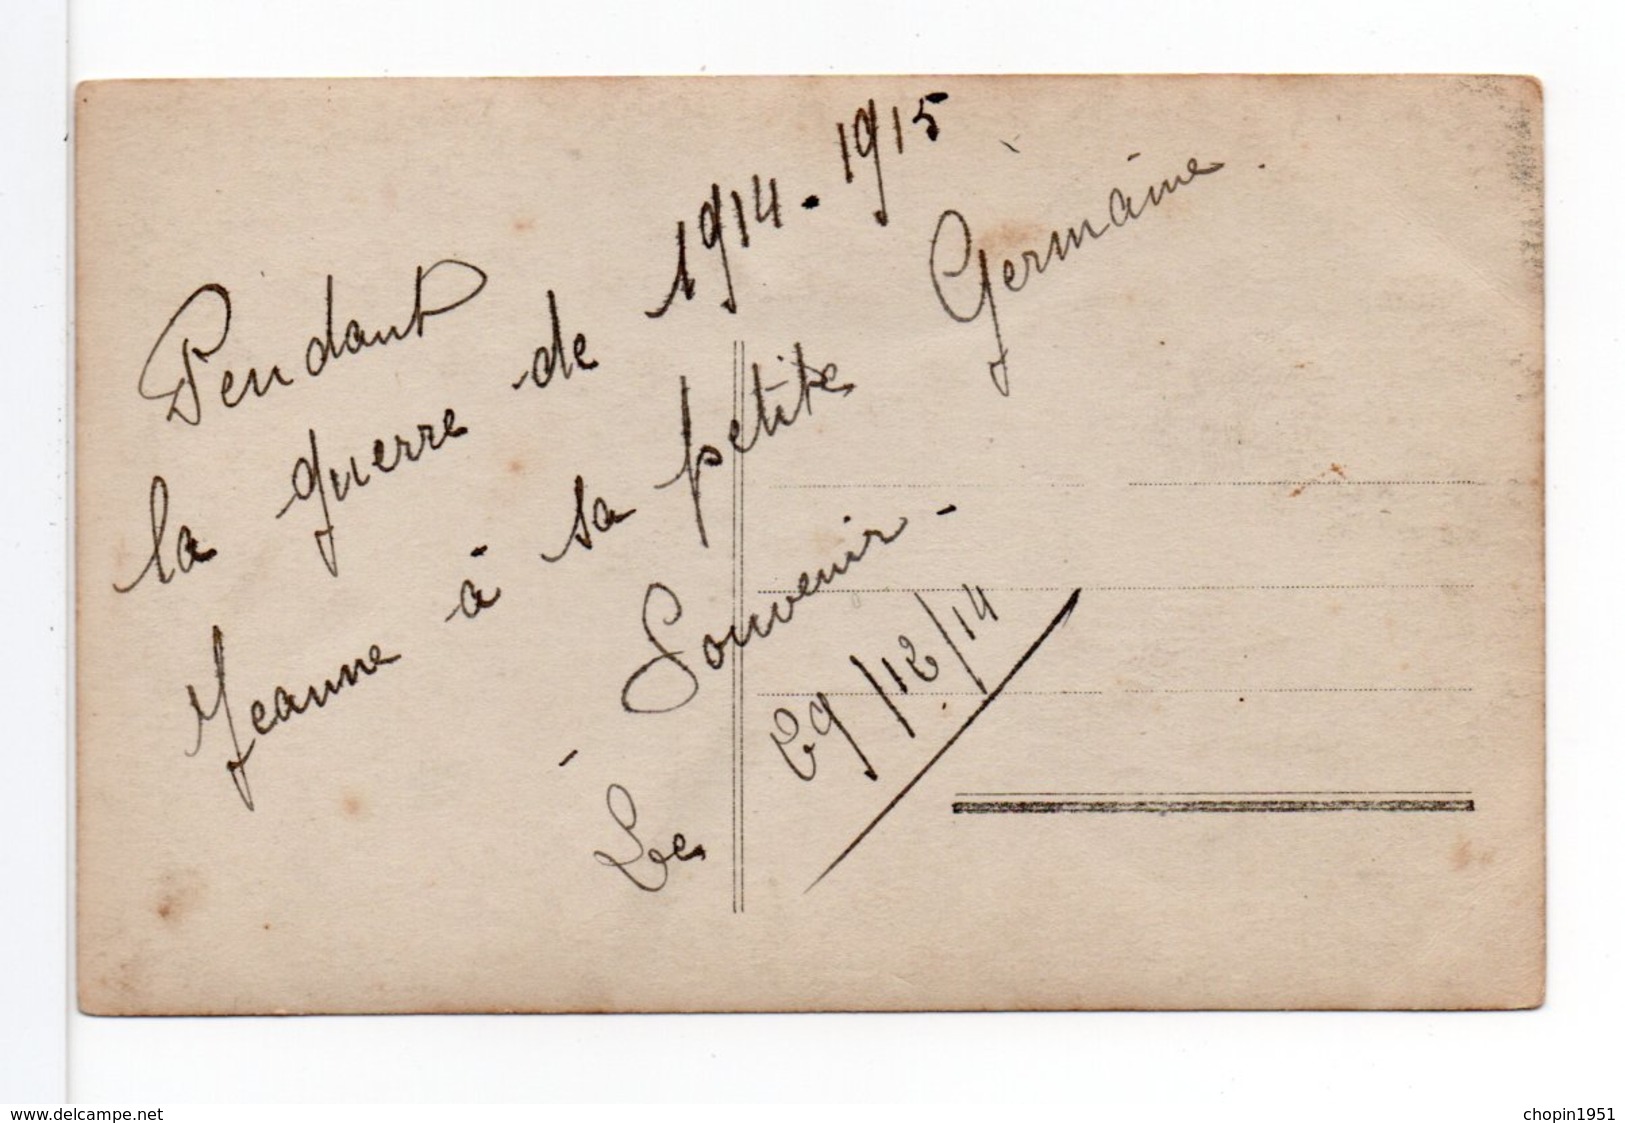 Pendant
la guerre de 1914-1915
Jeanne à sa petite Germaine.
- Souvenir -
Le 29/12/14
www.delcampe.net
chopin1951